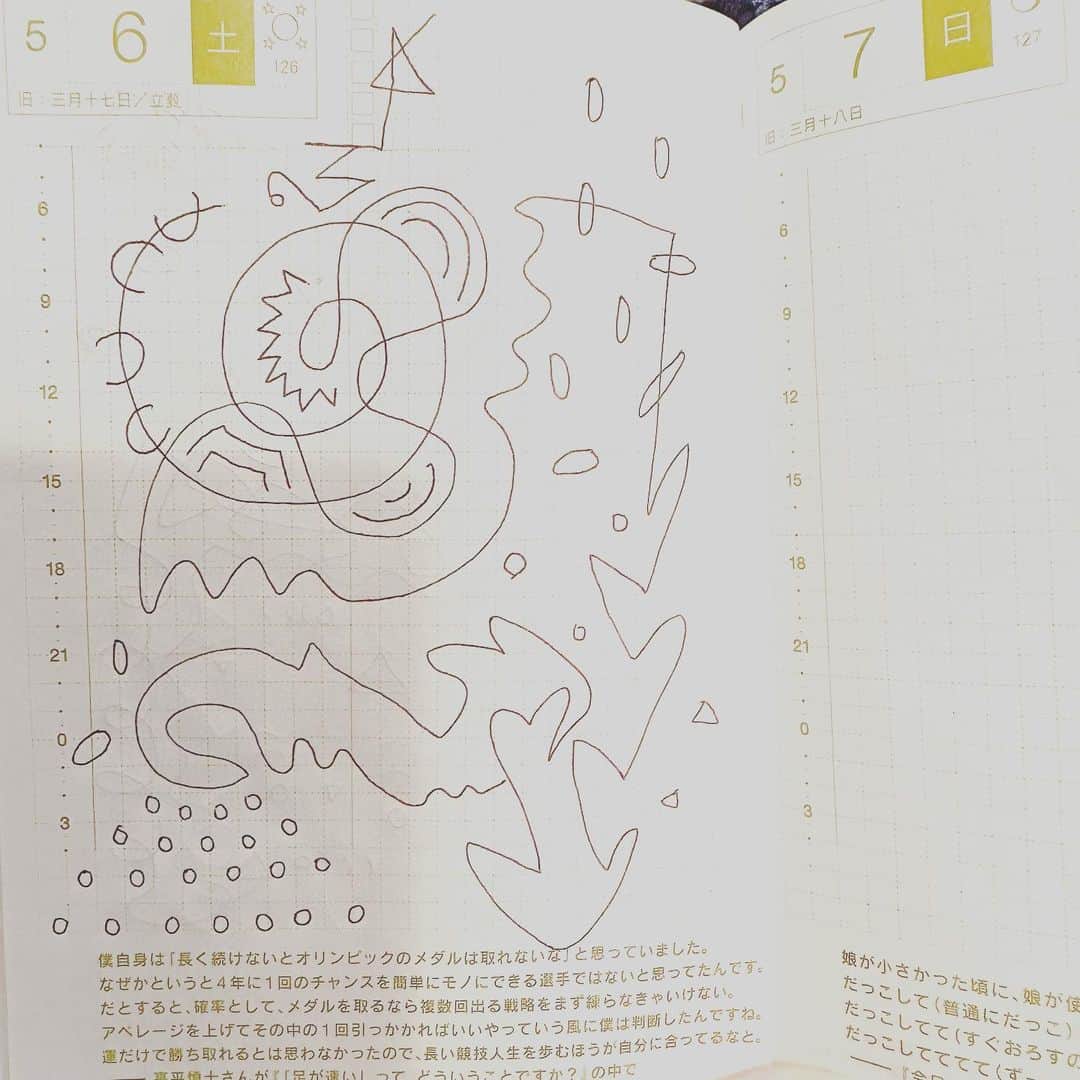 5 6 土
126
旧：三月十七日／立夏
6
9
12
15
18
21
0
3
僕自身は「長く続けないとオリンピックのメダルは取れないな」と思っていました。
なぜかというと4年に1回のチャンスを簡単にモノにできる選手ではないと思ってたんです。
だとすると、確率として、メダルを取るなら複数回出る戦略をまず練らなきゃいけない。
アベレージを上げてその中の1回引っかかればいいやっていう風に僕は判断したんですね。
運だけで勝ち取れるとは思わなかったので、長い競技人生を歩むほうが自分に合ってるなと。
が『「足が速い」って、どういうことですか？』の中で
5 7 日
127
旧：三月十八日
6
9
12
15
18
21
0
3
娘が小さかった頃に、娘が使
だっこして（普通にだっこ）
だっこしてて（すぐおろすの
だっこしてててて（ずっ